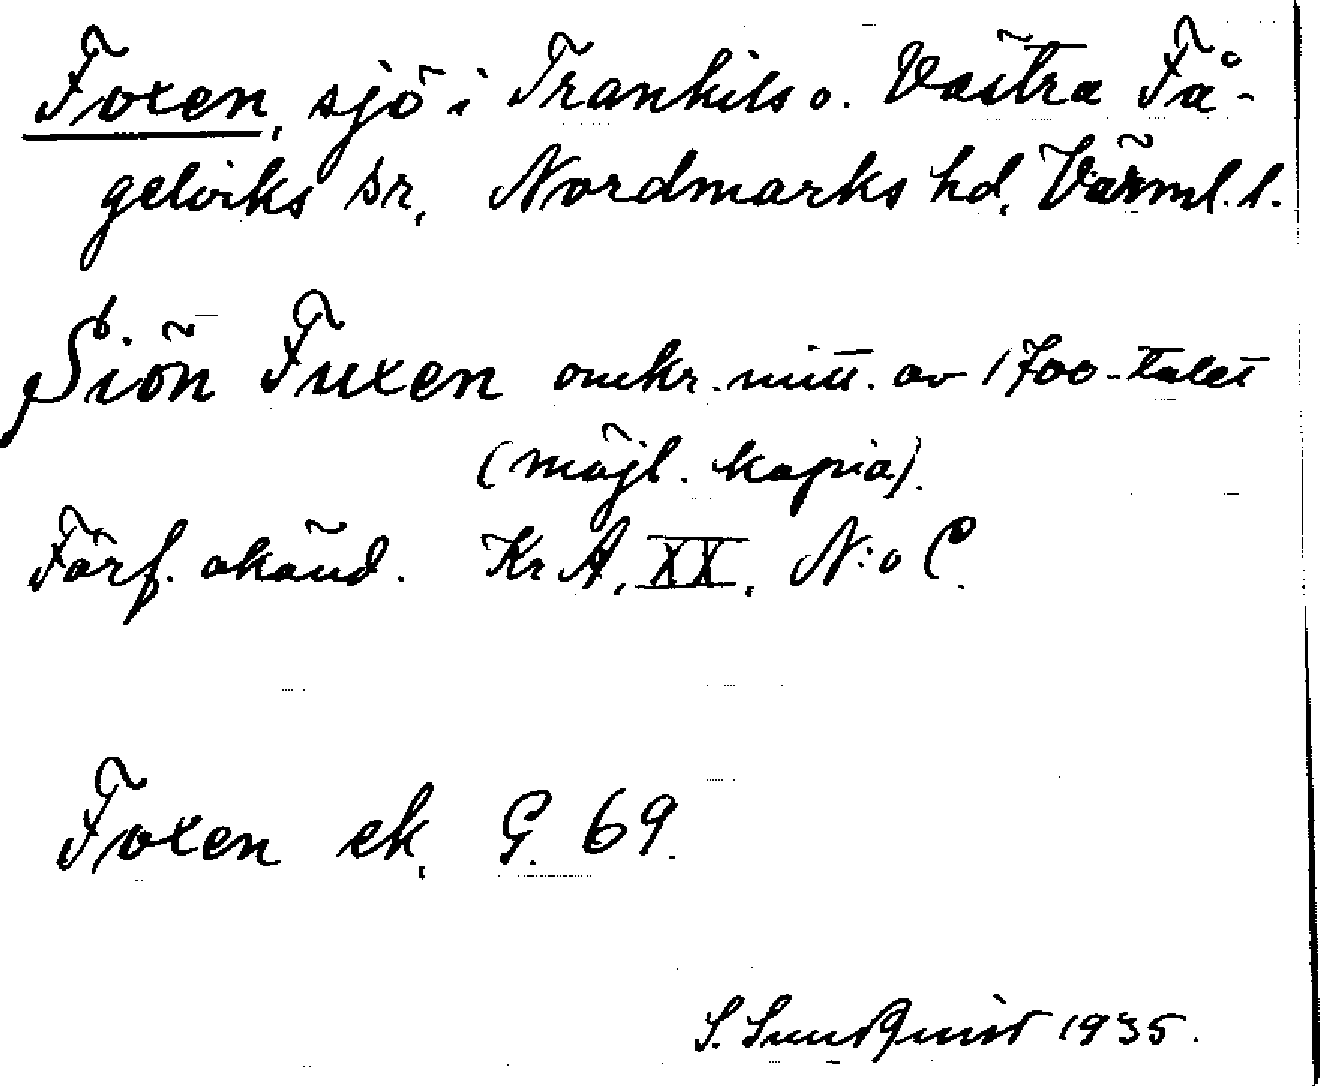 Foxen, sjö i Trankils o. Västra Få-
gelviks sr, Nordmarks hd, Värml. l.
Siön Fuxen omkr. mitt. av 1700-talet
(möjl. kopia).
Förf. okänd. Kr A, XX, N:o C.
Foxen ek, G. 69.
S. Sundquist 1935.